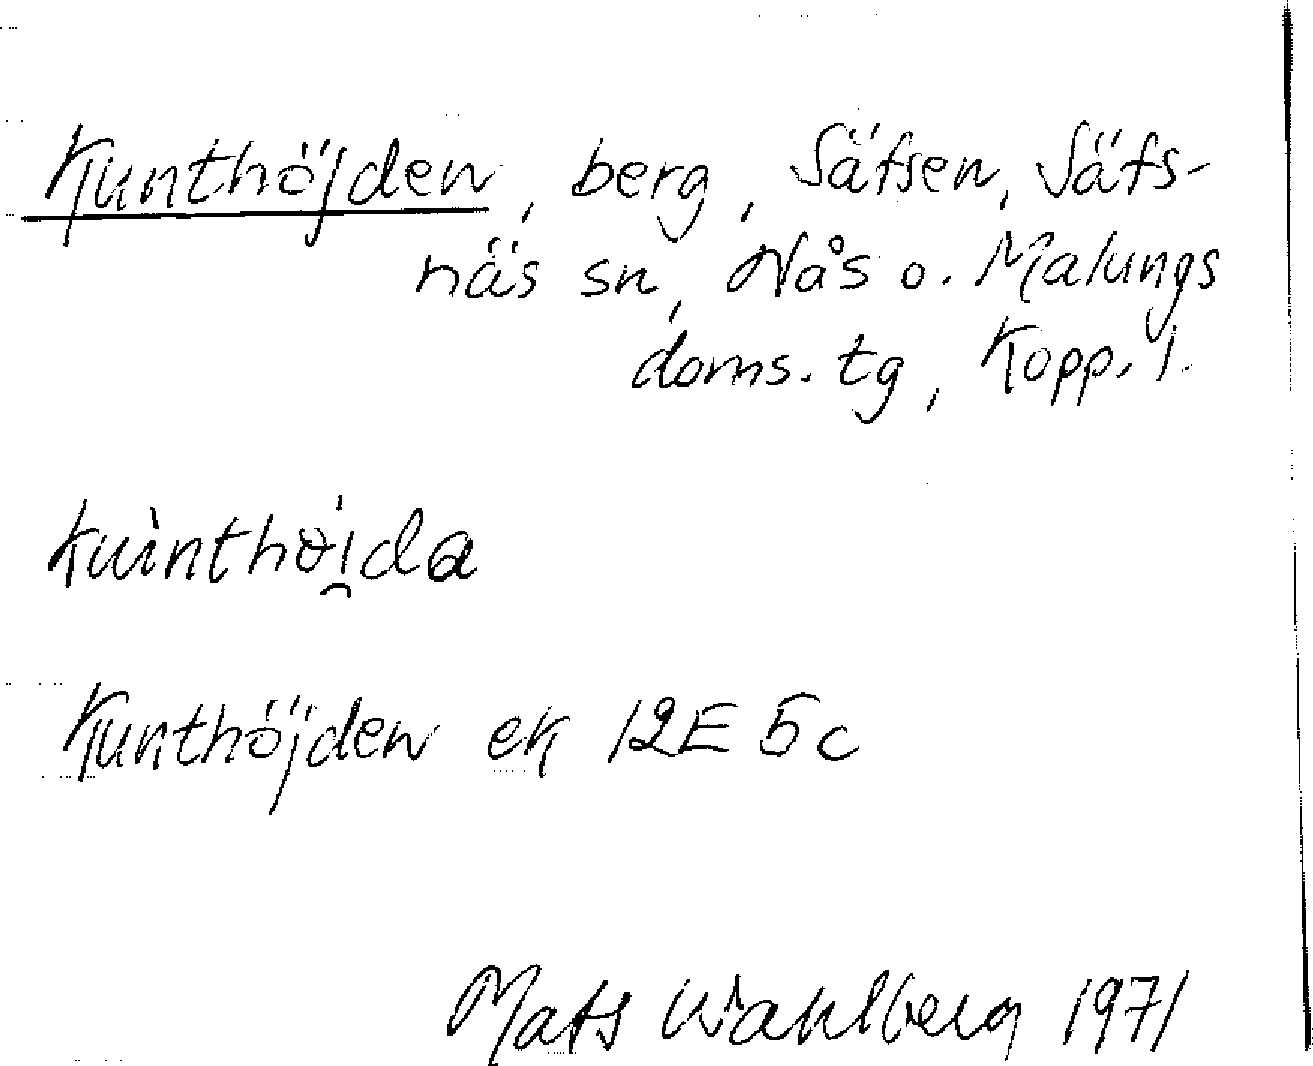 Kunthöjden, berg, Säfsen, Säfs-
näs sn, Nås o. Malungs
doms. tg, Kopp. l.
kùnthöi̯da
Kunthöjden ek 12E 5c
Mats Wahlberg 1971